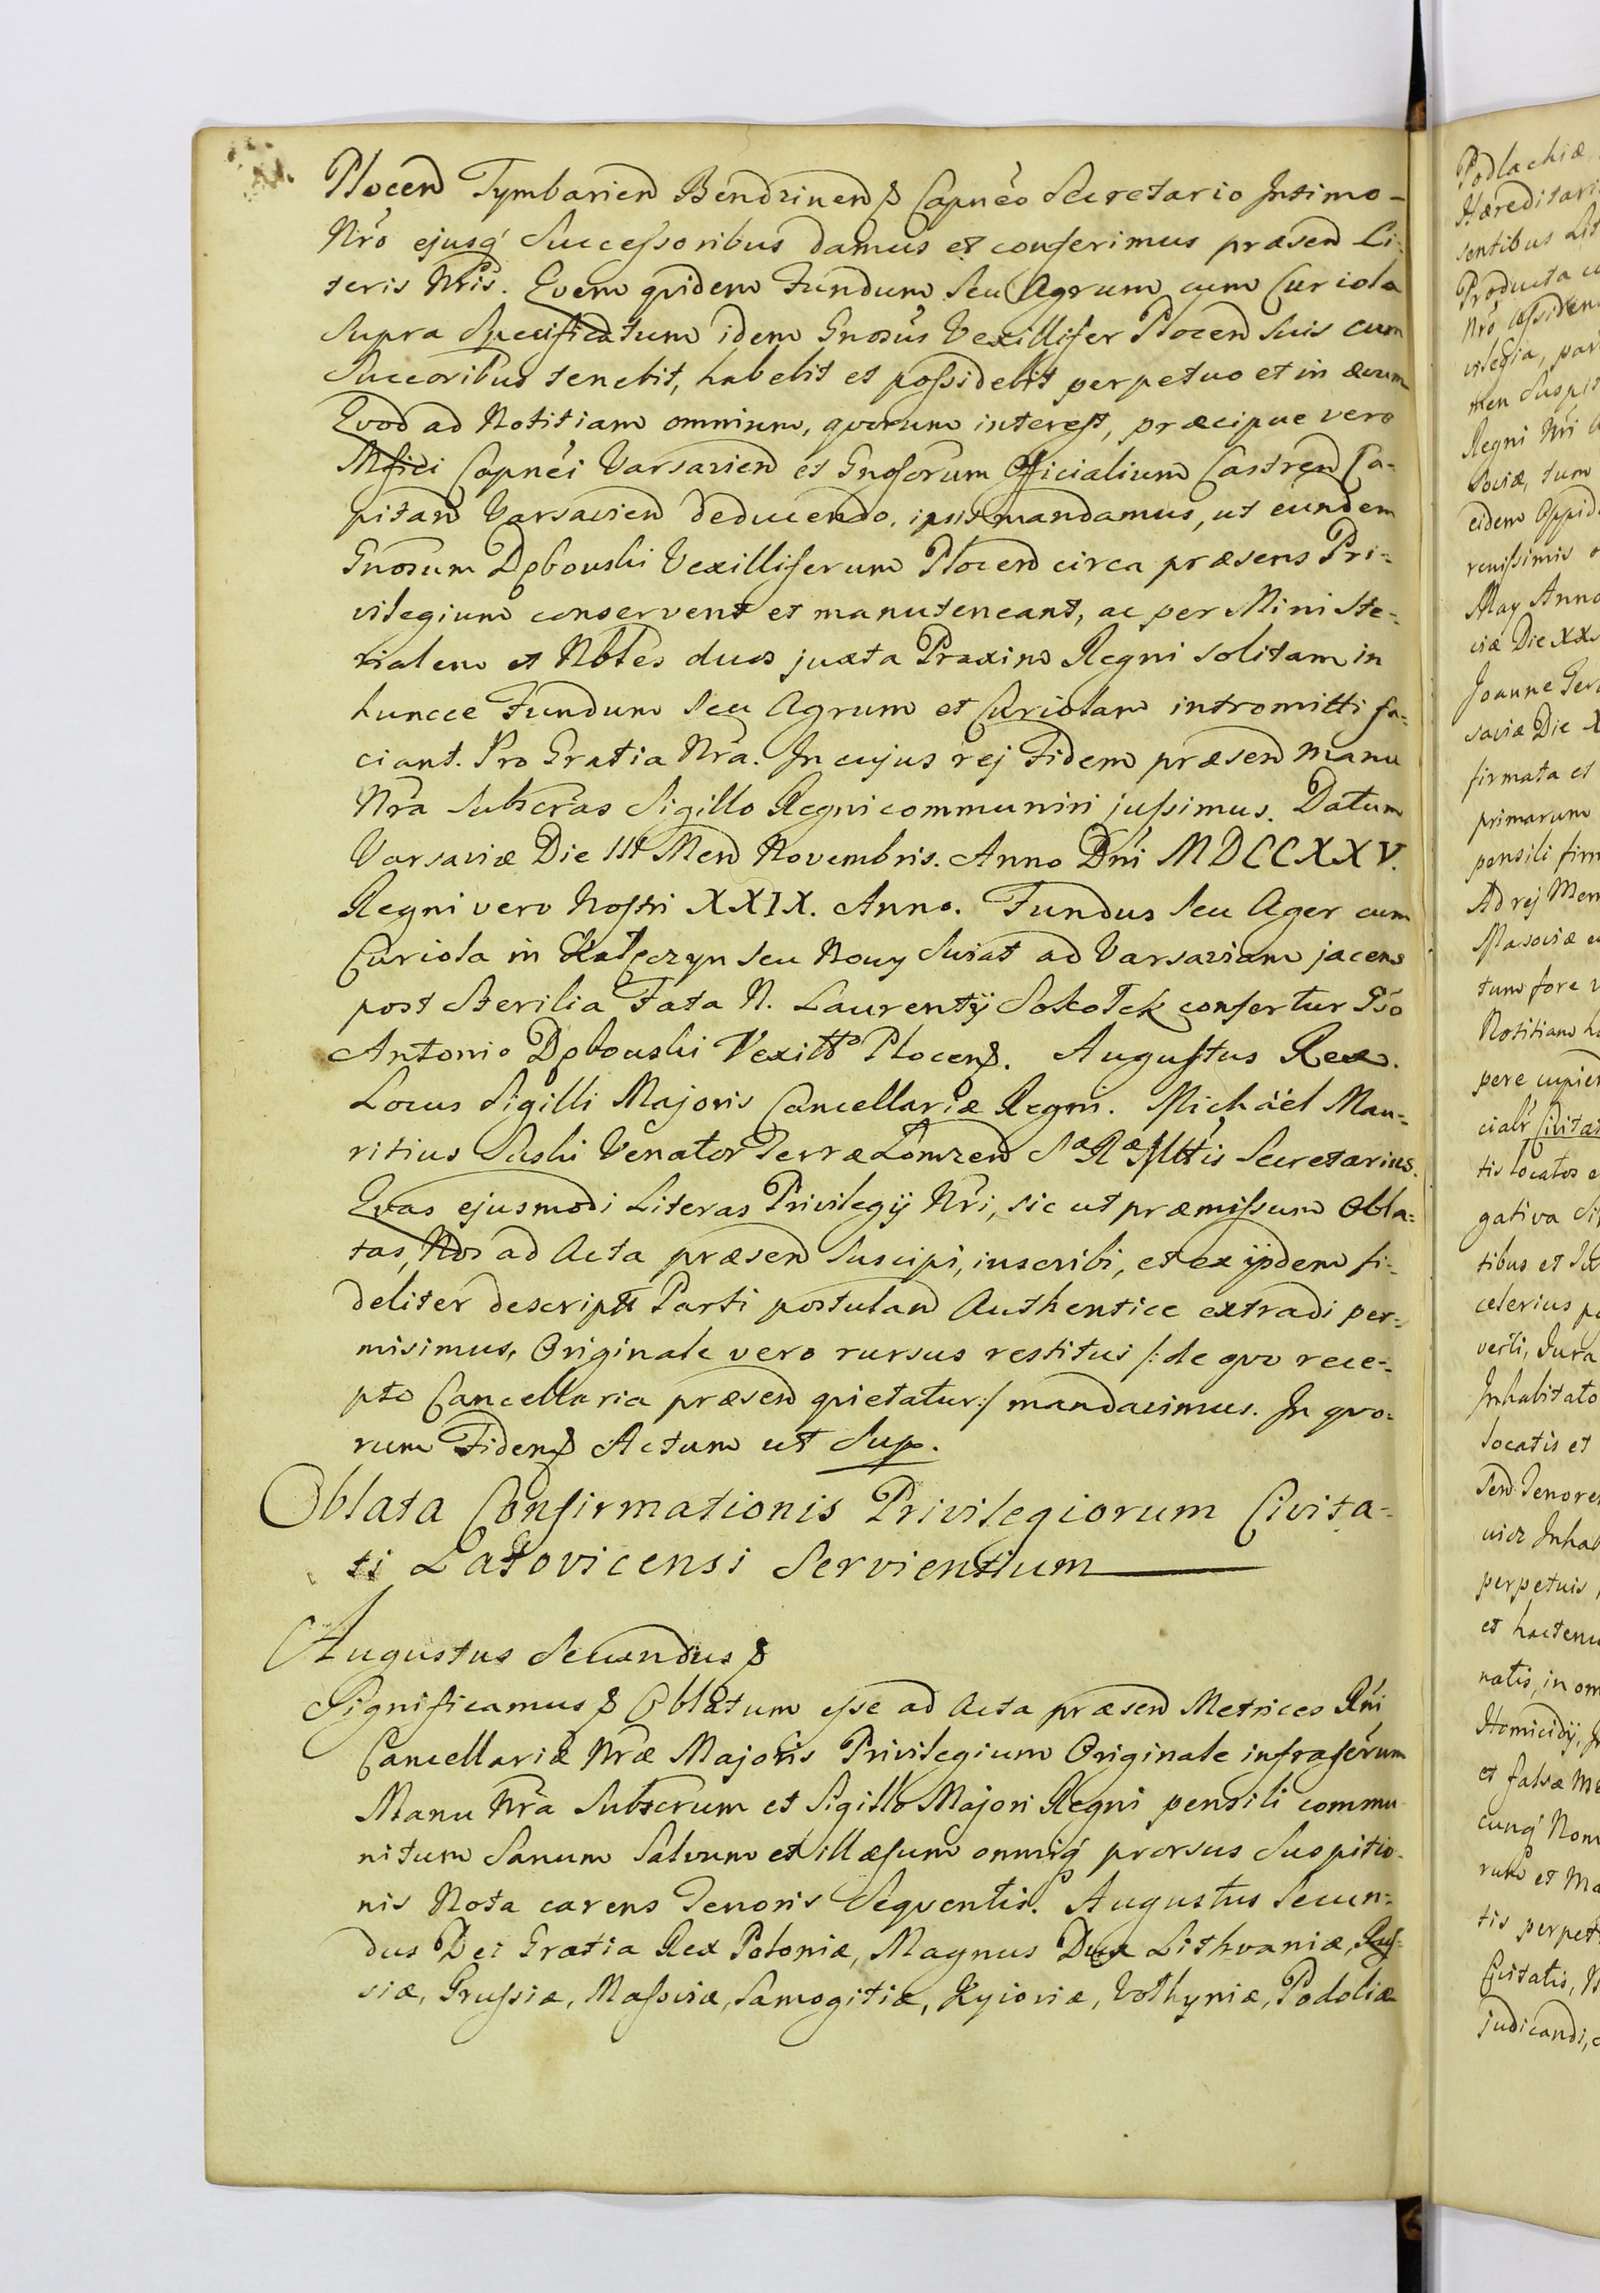 Plocen Tymbarien Bendzinen & Capneo Secretario Intimo-
Nro ejusq́ Successoribus damus et conferimus præsen Li-
teris Nris. Qvem qvidem Fundum seu Agrum cum Curiola
supra specificatum idem Gnosus Vexillifer Plocen suis cum
Succoribus tenebit, habebit et possidebit perpetuo et in ævum
Qvod ad Notitiam omnium, qvorum interest, præcipue vero
Mfici Capnei Varsavien et Gnosorum Officialium Castren Ca-
pitan Varsavien deducendo, ipsis mandamus, ut eundem
Gnosum Dębowski Vexilliferum Plocen circa præsens Pri-
vilegium conservent et manuteneant, ac per Ministe-
rialem et Nbles duos juxta Praxim Regni solitam in
huncce Fundum seu Agrum et Curiolam intromitti fa-
ciant. Pro Gratia Nra. In cujus rej Fidem præsen manu
Nra Subscras Sigillo Regni communiri jussimus. Datum
Varsaviæ Die Men Novembris. Anno Dni MDCCXXV.
Regni vero Nostri XXIX. Anno. Fundus seu Ager cum
Curiola in Kałęczyn seu Nowy Swiat ad Varsaviam jacens
post Sterilia Fata N. Laurentÿ Sokołek confertur Gso
Antonio Dębowski Vexillo Plocen&. Augustus Rex.
Locus Sigilli Majoris Cancellariæ Regni. Michäel Mau-
ritius Suski Venator Terræ Łomzen Sæ Ræ Mttis Secretarius.
Qvas ejusmodi Literas Privilegÿ Nri, sic ut præmissum obla-
tas, Nos ad Acta præsen suscipi, inscribi, et ex ÿsdem fi-
deliter descript Parti postulan Authentice extradi per-
misimus, Originale vero rursus restitui /: de qvo rece-
pto Cancellaria præsen qvietatur :/ mandavimus. In qvo-
rum Fidem & Actum ut Sup.
Oblata Confirmationis Privilegiorum Civita-
ti Latovicensi Servientium
Augustus Secundus &
Significamus & Oblatum esse ad Acta præsen Metrices Rni
Cancellariæ Nræ Majoris Privilegium Originale infrascrum
Manu Nra Subscrum et Sigillo Majori Regni pensili commu-
nitum Sanum Salvum et illæsum omniq́ prorsus Suspitio-
nis Nota carens Tenoris Seqventis. Augustus Secun-
dus Dei Gratia Rex Poloniæ, Magnus Dux Lithvaniæ, Rus-
siæ, Prussiæ, Massoviæ, Samogitiæ, Kyioviæ, Volhyniæ, Podoliæ
Podlachiæ
Hæreditari
sentibus Lit
Producta
Nro Assiden
vilegia, par
men Suspit
Regni Nri
soviæ, tum
eidem Oppid
renissimis
May Anno
viæ Die XX
Joanne
saviæ Die
firmata et
primarum
pensili firm
Ad rej Mem
Masoviæ
tum fore
Notitiam
pere cupien
cialr Civitat
tis locatos
gativa
tibus et
celerius
verti, Jura
Inhabitato
locatis et
Tenore
Inhab
perpetuis,
et hactenu
natis, in om
Homicidÿ,
et falsæ Me
cunq́ Nom
rum et Ma
tis perpet
Civitatis,
judicandi,